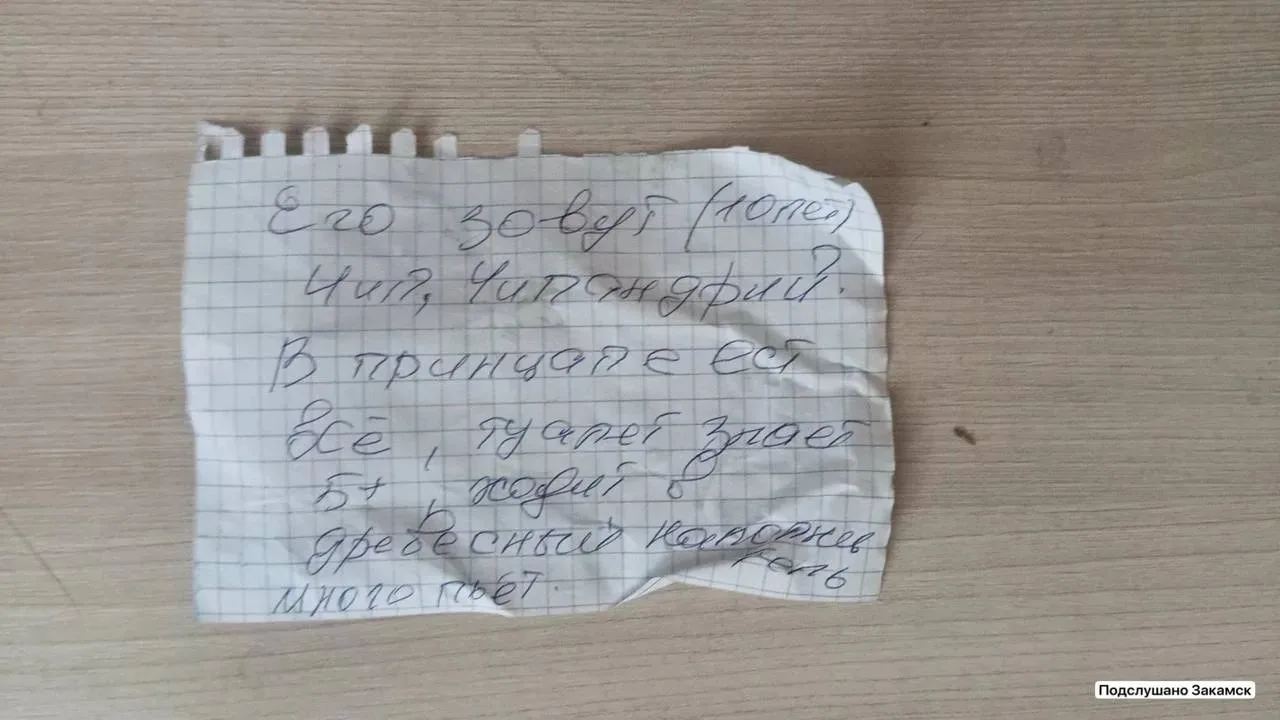 Его зовут (10 лет)
Чип, Чипандрий.
В принципе ест
всё, туалет знает
5+, ходит в
древесный наполни
тель
много пьёт.
Подслушано Закамск